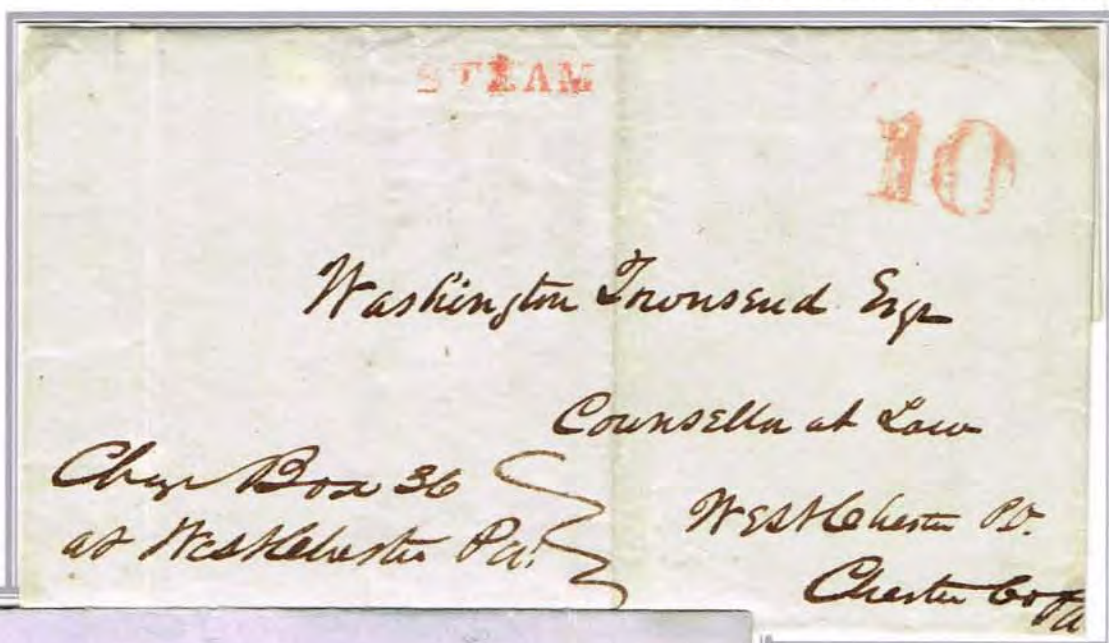 STEAM
10
Washington Townsend Esqr
Counsellor at Law
West Chester P.O.
Chester Co Pa
Chge Box 36
at West Chester Pa.